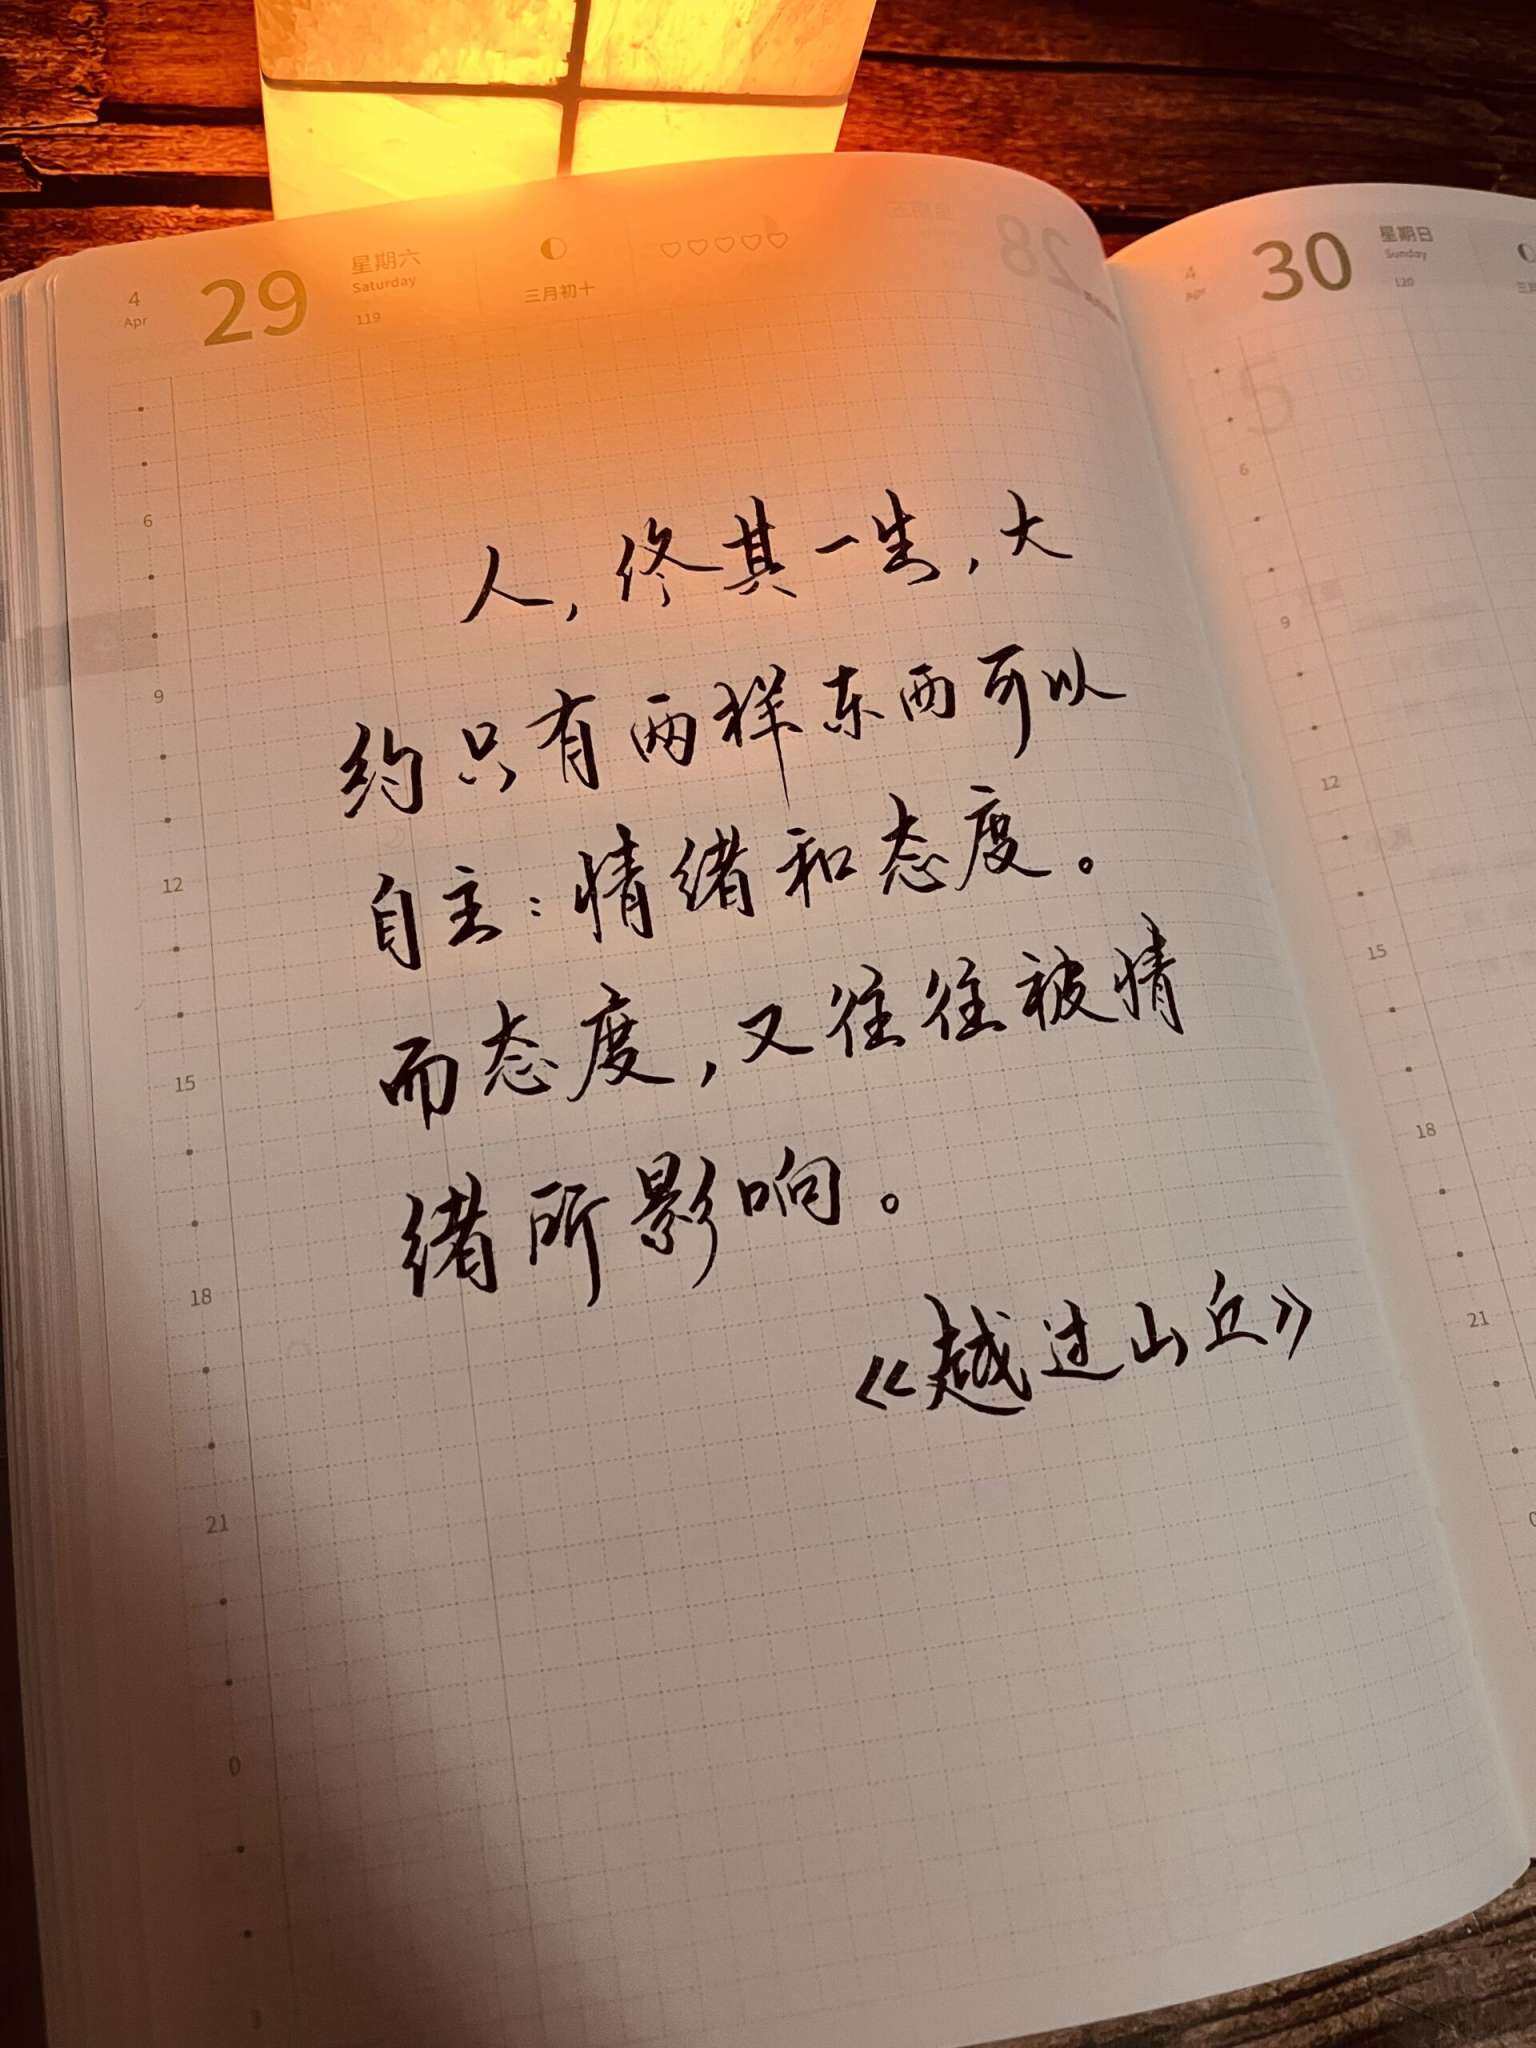 4
Apr
29
星期六
Saturday
119
三月初十
人，终其一生，大
约只有两样东西可以
自主：情绪和态度。
而态度，又往往被情
绪所影响。
《越过山丘》
6
9
12
15
18
21
0
3
28
4
Apr
30
星期日
Sunday
120
5
6
9
12
15
18
21